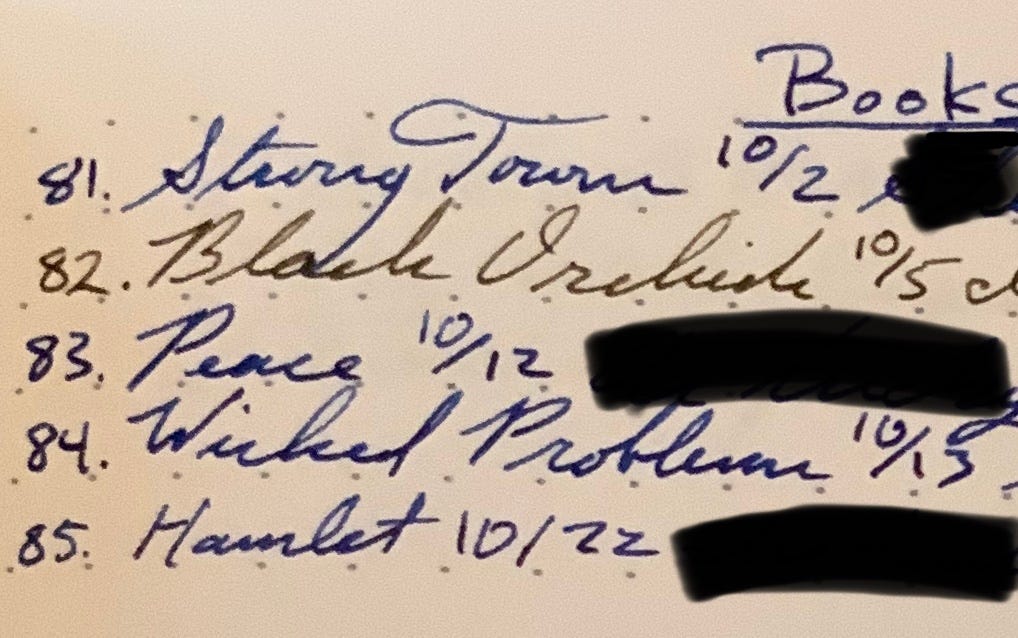 Books
81. Strong Towns 10/2
82. Black Orchids 10/5
83. Peace 10/12
84. Wicked Problems 10/13
85. Hamlet 10/22